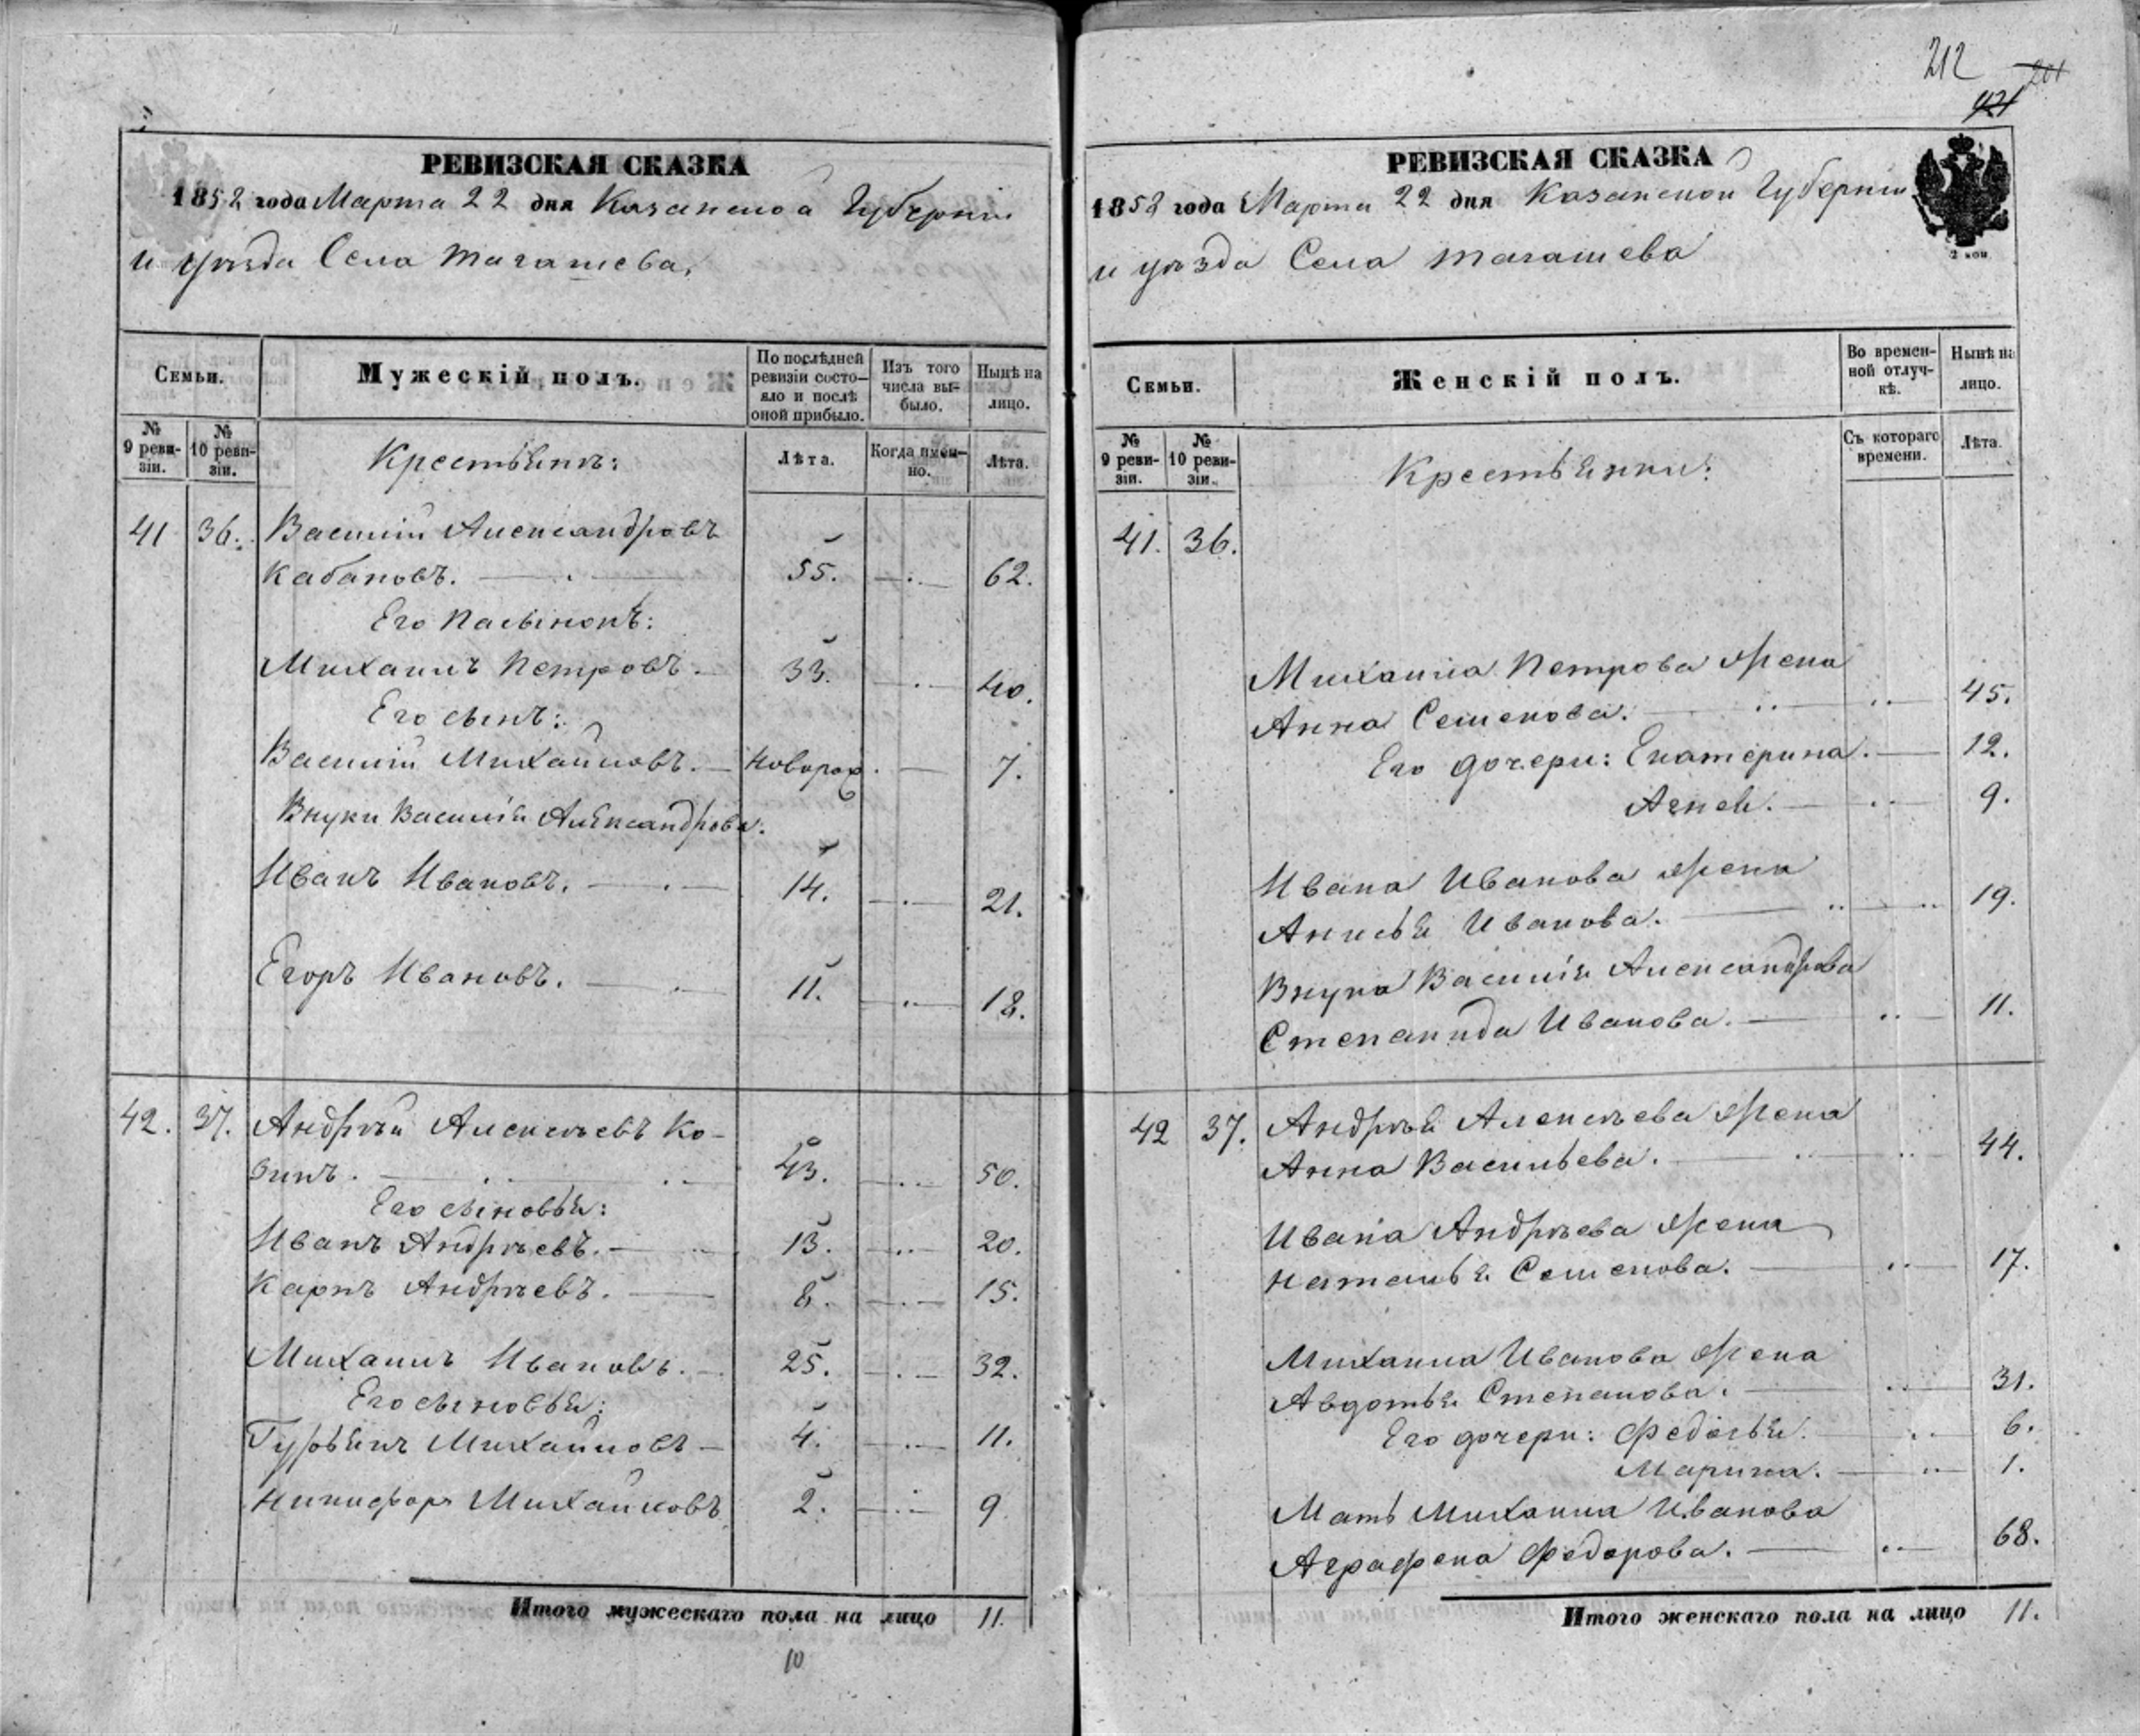 РЕВИЗСКАЯ СКАЗКА
1858 года Марта 22 дня Казанской Губернiи
и уѣзда Села Тагашева.
Семьи.
Мужескій полъ.
По послѣдней ревизіи состояло и послѣ оной прибыло.
Изъ того числа выбыло.
Нынѣ на лицо.
№ 9 ревизіи.
№ 10 ревизіи.
Крестьянъ:
Лѣта.
Когда именно.
Лѣта.
41 36. Василій Александровъ
Кабановъ. 55. 62.
Его пасынокъ:
Михаилъ Петровъ. 33. 40.
Его сынъ:
Василій Михайловъ. новорож. 7.
Внуки Василія Александрова:
Иванъ Ивановъ. 14. 21.
Егоръ Ивановъ. 11. 18.
42. 37. Андрѣй Алексѣевъ Ко-
зинъ. 43. 50.
Его сыновья:
Иванъ Андрѣевъ. 13. 20.
Карпъ Андрѣевъ. 8. 15.
Михаилъ Ивановъ. 25. 32.
Его сыновья:
Гурьянъ Михайловъ 4. 11.
Никифоръ Михайловъ 2. 9
Итого мужескаго пола на лицо 11.
10
212 201
421
РЕВИЗСКАЯ СКАЗКА
1858 года Марта 22 дня Казанской Губернiи
и уѣзда Села Тагашева
2 коп
Семьи.
Женскій полъ.
Во временной отлучкѣ.
Нынѣ на лицо.
№ 9 ревизіи.
№ 10 ревизіи.
Крестьянки:
Съ котораго времени.
Лѣта.
41. 36.
Михаила Петрова жена
Анна Семенова. 45.
Его дочери: Екатерина. 12.
Агнея. 9.
Ивана Иванова жена
Анисья Иванова. 19.
Внука Василія Александрова
Степанида Иванова. 11.
42 37. Андрѣя Алексѣева жена
Анна Васильева. 44.
Ивана Андрѣева жена
Наталья Семенова. 17.
Михаила Иванова жена
Авдотья Степанова. 31.
Его дочери: Федосья. 6.
Марина. 1.
Мать Михаила Иванова
Аграфена Федорова. 68.
Итого женскаго пола на лицо 11.